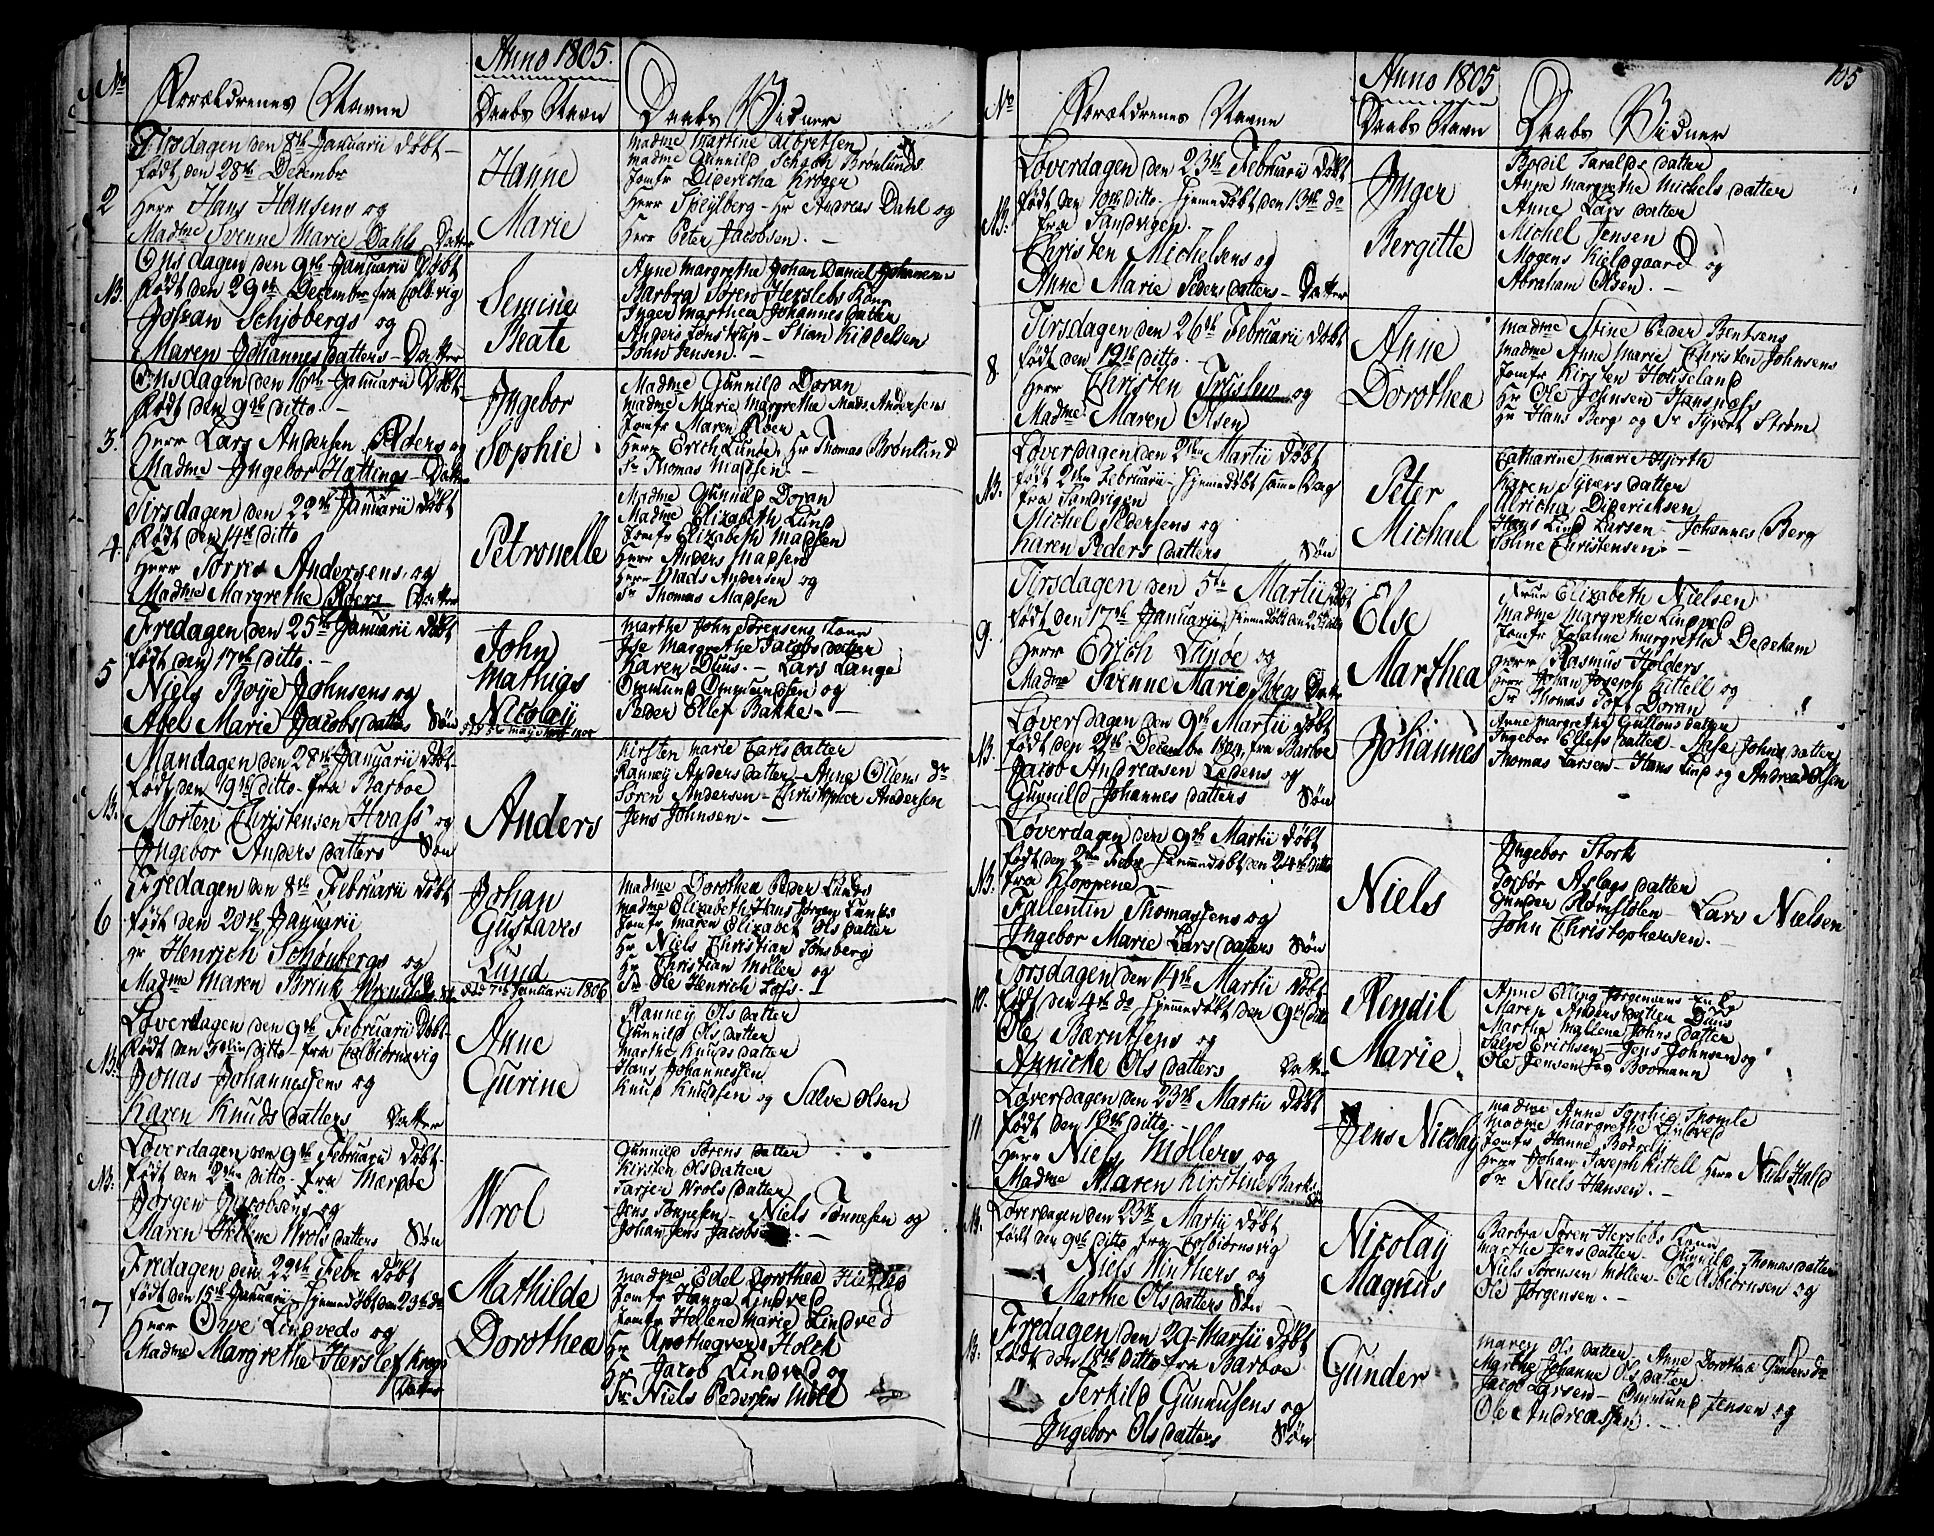 Anno 1805.
No
Forældrenes Navne
Daabs Navn
Daabs Vidner
2
Tirsdagen den 8de Januarii Døbt
født den 28de Decembr
Herr Hans Hansens og
Madme Svenne Marie Dahls Datter
Hanne
Marie
Madme Martine Albretsen
Madme Gunnild Schach Brønlunds
Jomfr Didericha Krøger
Herr Speilberg - Hr Andreas Dahl og
Herr Peter Jacobsen. -
NB.
Onsdagen den 9de Januarii Døbt
født den 29de Decembr fra Colbvig
Johan Schiøbergs og
Maren Johannesdatters - Datter
Semine
Beate
Anne Margrethe Johan Daniel Johannesen
Barbra Søren Herslebs Kone
Inger Marthea Johannesdatter
Anders Lonstrup - Stian Kiddelsen
John Jensen. -
3.
Onsdagen den 16de Januarii Døbt
født den 9de ditto. -
Herr Lars Andersen Roers og
Madme Ingebor Hættings - Datter
Ingebor
Sophie
Madme Gunnild Doran
Madme Marie Margrethe Mads Andersens
Jomfr Maren Roer
Herr Erich Lund, Hr Thomas Brønlund
Sr Thomas Madsen. -
4.
Tirsdagen den 22de Januarii Døbt
født den 14de ditto
Herr Torres Andersens, og
Madme Margrethe Roers Datter
Petronelle
Madme Gunnild Doran
Madme Elizabeth Lund
Jomfr Elizabeth Madsen
Herr Anders Madsen
Herr Mads Andersen og
Sr Thomas Madsen
5
Fredagen den 25de Januarii Døbt
født den 17de ditto. -
Niels Boye Johnsens og
Abel Marie Jacobsdatters Søn
John
Mathias
Nicolaii
Marthe John Sørensens Kone
Ide Margrethe Jacobsdatter
Karen Duus. - Lars Lange
Ommund Ommundsen og
Peder Ellef Bakke. -
NB.
Mandagen den 28de Januarii Døbt
født den 19de ditto - fra Barboe
Morten Christensen Hvass og
Ingebor Andersdatters Søn
Anders
Kirsten Marie Larsdatter
Ranney Andersdatter - Anne Olens dr
Søren Andersen - Christopher Andersen
Jens Johnsen. -
6
Fredagen den 8de Februarii Døbt
født den 20de Januarii
Hr Henrich Schønbergs og
Madme Maren Brink
Johan
Gustaves
Lund
død 7de Januarii 1806
Madme Dorothea Peder Lunds
Madme Elizabeth Hans Jørgen Lunds
Jomfr Maren Elizabet Olsdatter
Hr Niels Christian Tønsberg
Hr Christian Møller og
Sr Ole Henrich Lass.
NB.
Løverdagen den 9de Februarii Døbt
født den ditto - fra Colbiørnsvig
Jonas Johannessens og
Karen Knudsdatters Datter
Anne
Gurine
Ranney Olsdatter
Gunnild Olsdatter
Marthe Knudsdatter
Hans Johannessen
Knud Knudsen og Salve Olsen
NB.
Løverdagen den 9de Februarii Døbt
født den 2den ditto - fra Mærdøe
Jørgen Jacobsens og
Maren Wrolsdatters Søn
Wrol
Gunnild Sørensdatter
Kirsten Olsdatter
Tarjer Wrolsdatter
Jens Tønnesen - Niels Tønnesen og
Johan Jens Jacobsen. -
7
Fredagen den 22de Febr Døbt
født den 15de Januarii Hjemedøbt den 23de do
Herr Owe Lindveds og
Madme Margrethe Herslef Krogs
Datter
Mathilde
Dorothea
Madme Edel Dorothea
Jomfr Hanna Lindved
Jomfr Hellene Marie Lindved
Hr Apotheqver Holck
Hr Jacob Lindved og
Sr Niels Pedersen
105
Anno 1805
No
Forældrenes Navne
Daabs Navn
Daabs Vidner
NB.
Løverdagen den 23de Februarii Døbt
født den 10de ditto - Hjemedøbt den 13de do
fra Sandvigen
Christen Michelsens og
Anne Marie Pedersdatters - Datter
Inger
Bergitte
Bodil Taraldsdatter
Anne Margrethe Michelsdatter
Anne Larsdatter
Michel Jensen
Mogens Kieldgaard og
Abraham Olsen. -
8
Tirsdagen den 26de Februarii Døbt
født den 19de ditto. -
Herr Christen og
Madme Maren Olsen
Anne
Dorothea
Madme Stine Peder Bentsens
Madme Anne Marie Christen Johnsens
Jomfr Kirsten
Hr Ole Johnsen Hansnæs
Hr Hans Berg og Sr Syvert Strøm
NB.
Løverdagen den 2den Martii Døbt
født 2den Februarii - Hjemedøbt samme Dag
fra Sandvigen
Michel Pedersens og
Karen Pedersdatters Søn
Peter
Michael
Catharine Marie Hjorth
Karen Syversdatter
Ulricha Diderichsen
Hans Lind Larsen - Johannes Berg
Tohne Christensen. -
9.
Tirsdagen den 5te Martii Døbt
født den 17de Januarii, Hjemedøbt den
Herr Erich og
Madme Svenne Marie Boas Datter
Else
Marthea
Frue Elizabeth Nielsen
Madme Margrethe Lindved
Jomfr Josanne Margrethe Dedekam
Herr Rasmus Holders
Herr Johan Joseph Kittell og
Sr Thomas Toft Doran
NB.
Løverdagen den 9de Martii Døbt
født den Decembr 1804, fra Barboe
Jacob Andreasen Ledens og
Gunnild Johannesdatters Søn
Johannes
Anne Margrethe Guttormsdatter
Ingebor Ellefsdatter - Aase Johnsdatter
Thomas Larsen - Hans Lind og Andreas Olsen
NB.
Løverdagen den 9de Martii Døbt
født den 2den Febr Hjemmedøbt den 24de ditto
fra Kloppene -
Fallentin Thomassens og
Ingebor Marie Larsdatters Søn
Niels
Ingebor Stork
Torbør Aslagsdatter
Gunder Romstølen - Lars Nielsen
John Christophersen. -
10.
Torsdagen den 14de Martii Døbt
født den 4de do Hjemmedøbt den 9de ditto
Ole Bærntsens og
Annicke Olsdatters Datter
Rendil
Marie
Anne Elling Jørgensens Enke
Maren Andersdatter Duus
Marthe Mallene Johnsdatter
Salve Erichsen - Jens Johnsen og
Ole Jensen Boomann
11.
Løverdagen den 23de Martii Døbt
født den 13de ditto. -
Herr Niels Møllers og
Madme Maren Kirstine Barks
Søn
Jens Nicolay
Madme Anne Sophie Thomle
Madme Margrethe Lindved
Jomfr Hanne
Herr Johan Joseph Kittell Herr Niels Hald
Sr Niels Hansen. -
NB.
Løverdagen den 23de Martii Døbt
født den 9de ditto fra Colbiørnsvig
Niels Winthers og
Marthe Olsdatters Søn
Nicolay
Magnus
Barbra Søren Herslebs Kone
Marthe Jensdatter - Gunnild Thomasdatter
Niels Sørensen Møller - Ole Asbiørnsen og
Ole Jørgensen. -
NB.
Fredagen den 29 Martii Døbt
født den 18de ditto fra Barboe
Terkild Gunnusens og
Ingebor Olsdatters Søn
Gunder
Maren Olsdatter - Anne Dorothea Gunders dr
Marthe Johanne Olsdatter
Jacob Larsen - Ommund Jensen og
Ole Andreassen. -